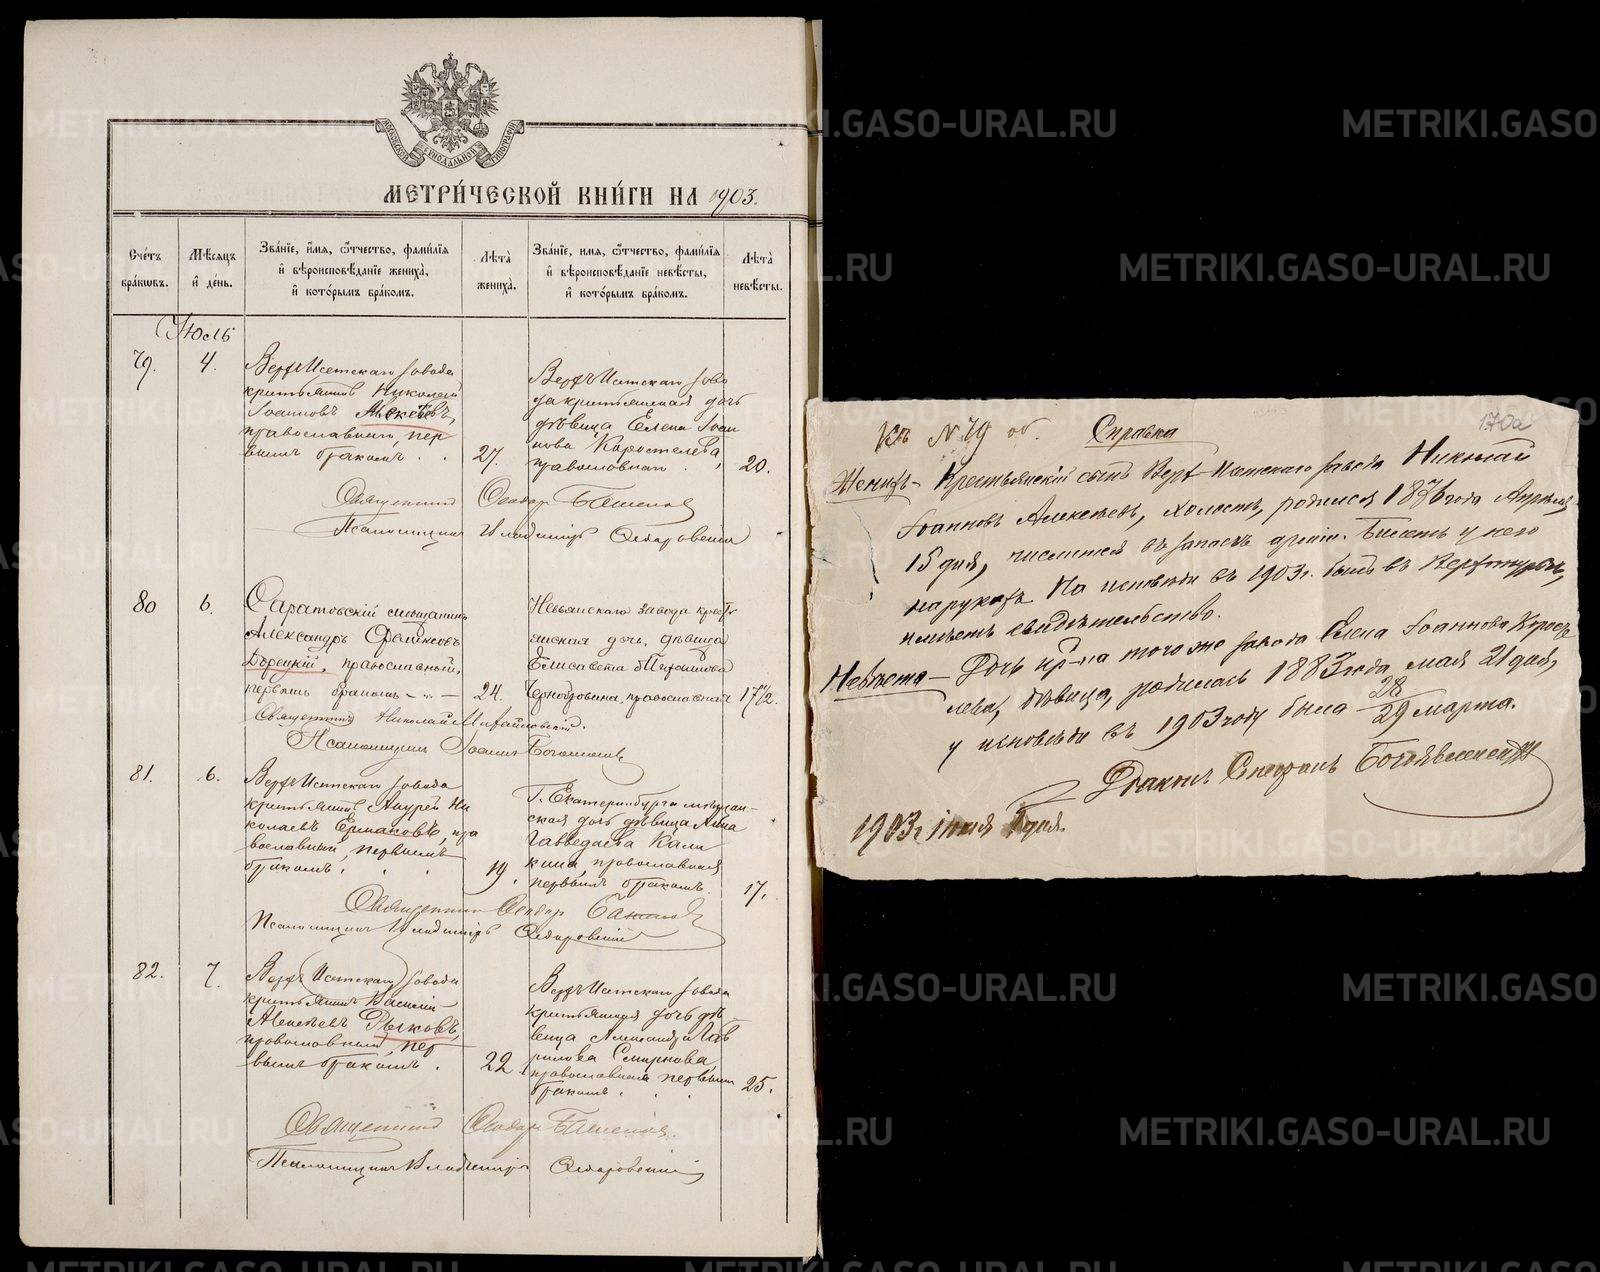 МОСКОВСКОЙ СѴНОДАЛЬНОЙ ТИПОГРАФІИ
МЕТРИ́ЧЕСКОЙ КНИ́ГИ НА 1903.
Сче́тъ бра́кѡвъ.
Мѣ́сяцъ и҆ де́нь.
Зва́нїе, и҆́мя, ѻ҆́тчество, фами́лїя
и҆ вѣроисповѣ́данїе жениха̀,
и҆ кото́рымъ бра́комъ.
Лѣта̀ жениха̀.
Зва́нїе, имя, ѻ҆́тчество, фами́лїя
и҆ вѣроисповѣ́данїе невѣ́сты,
и҆ кото́рымъ бра́комъ.
Лѣта̀ невѣ́сты.
Іюль
79. 4.
Верхъ Исетскаго завода
крестьянинъ Николай
Іоанновъ Алексѣевъ,
православнаго, пер
вымъ бракомъ. .
27.
Верхъ Исетскаго заво
да крестьянская дочь
дѣвица Елена Іоан
нова Коростелева,
православная .
20.
Священникъ Ѳеодоръ
Псаломщикъ Владиміръ
80 6.
Саратовскій мѣщанинъ
Александръ
православный,
первымъ бракомъ - „ -
24.
Невьянскаго завода крестъ
янская дочь, дѣвица
Елисавета
православная
17 1/2.
Священникъ Николай Михайловскій.
Псаломщикъ Іоаннъ
81. 6.
Верхъ Исетскаго завода
крестьянинъ Андрей Ни
колаевъ Ермаковъ, пра
вославный, первымъ
бракомъ, . .
19.
Г. Екатеринбурга мѣщан-
ская дочь дѣвица Анна
кина, православная
первымъ бракомъ.
17.
Священникъ Ѳеодоръ
Псаломщикъ Владиміръ
82. 7.
Верхъ Исетскаго завода
крестьянинъ Василій
Алексѣевъ Рыковъ,
православный, пер
вымъ бракомъ .
22.
Верхъ Исетскаго завода
крестьянская дочь дѣ
вица Александра Гав
рилова Смирнова,
православная первымъ
бракомъ . .
25.
Священникъ Ѳеодоръ
Псаломщикъ Владиміръ
170а
Къ № 79 об. Справка
Женихъ - Крестьянскій сынъ Верх-Исетскаго завода Николай
Іоанновъ Алексѣевъ, холостъ, родился 1876 года Апрѣля
15 дня, числится въ запасѣ арміи. Билетъ у него
на рукахъ. На исповѣди въ 1903 г. былъ въ
имѣетъ свидѣтельство.
Невѣста - Дочь кр-на того же завода Елена Іоаннова Коросте
лева, дѣвица, родилась 1883 года, мая 21 дня,
у исповѣди въ 1903 году была 28/29 марта.
Діаконъ Стефанъ Богоявленскій
1903 г. іюля дня.
METRIKI.GASO-URAL.RU